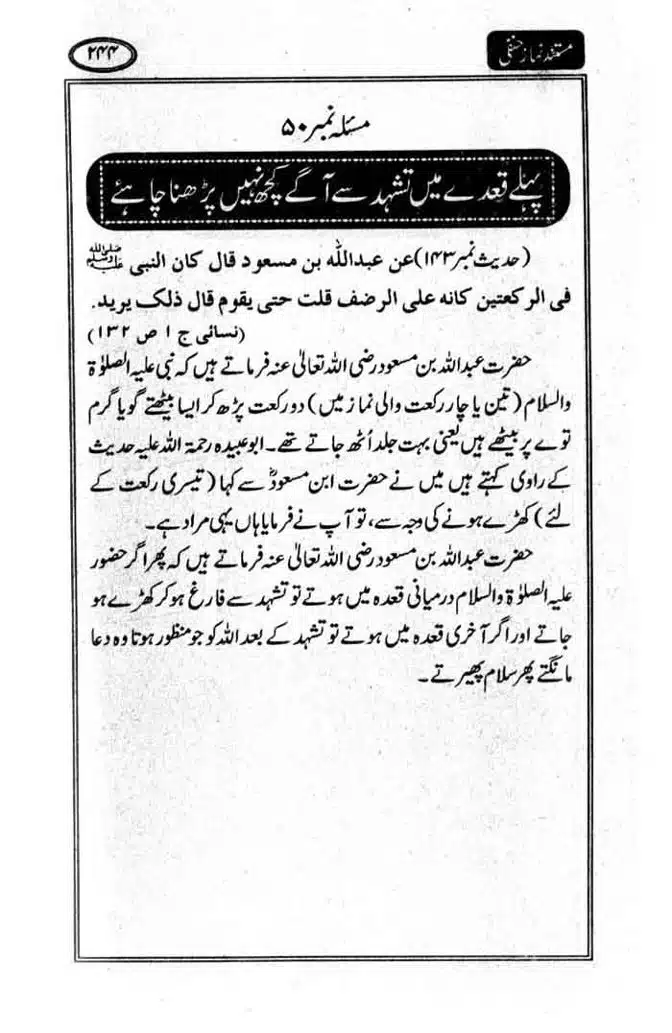 مستند نماز حنفی
۲۴۴
مسئلہ نمبر ۵۰
پہلے قعدے میں تشہد سے آگے کچھ نہیں پڑھنا چاہئے
(حدیث نمبر ۱۴۳) عن عبداللہ بن مسعود قال کان النبی ﷺ
فی الرکعتین کانہ علی الرضف قلت حتی یقوم قال ذلک یرید.
(نسائی ج ۱ ص ۱۳۲)
حضرت عبداللہ بن مسعود رضی اللہ تعالیٰ عنہ فرماتے ہیں کہ نبی علیہ الصلوٰۃ
والسلام (تین یا چار رکعت والی نماز میں) دو رکعت پڑھ کر ایسا بیٹھتے گویا گرم
توے پر بیٹھے ہیں یعنی بہت جلد اُٹھ جاتے تھے۔ ابوعبیدہ رحمۃ اللہ علیہ حدیث
کے راوی کہتے ہیں میں نے حضرت ابن مسعودؓ سے کہا (تیسری رکعت کے
لئے) کھڑے ہونے کی وجہ سے، تو آپ نے فرمایا ہاں یہی مراد ہے۔
حضرت عبداللہ بن مسعود رضی اللہ تعالیٰ عنہ فرماتے ہیں کہ پھر اگر حضور
علیہ الصلوٰۃ والسلام درمیانی قعدہ میں ہوتے تو تشہد سے فارغ ہو کر کھڑے ہو
جاتے اور اگر آخری قعدہ میں ہوتے تو تشہد کے بعد اللہ کو جو منظور ہوتا وہ دعا
مانگتے پھر سلام پھیرتے۔